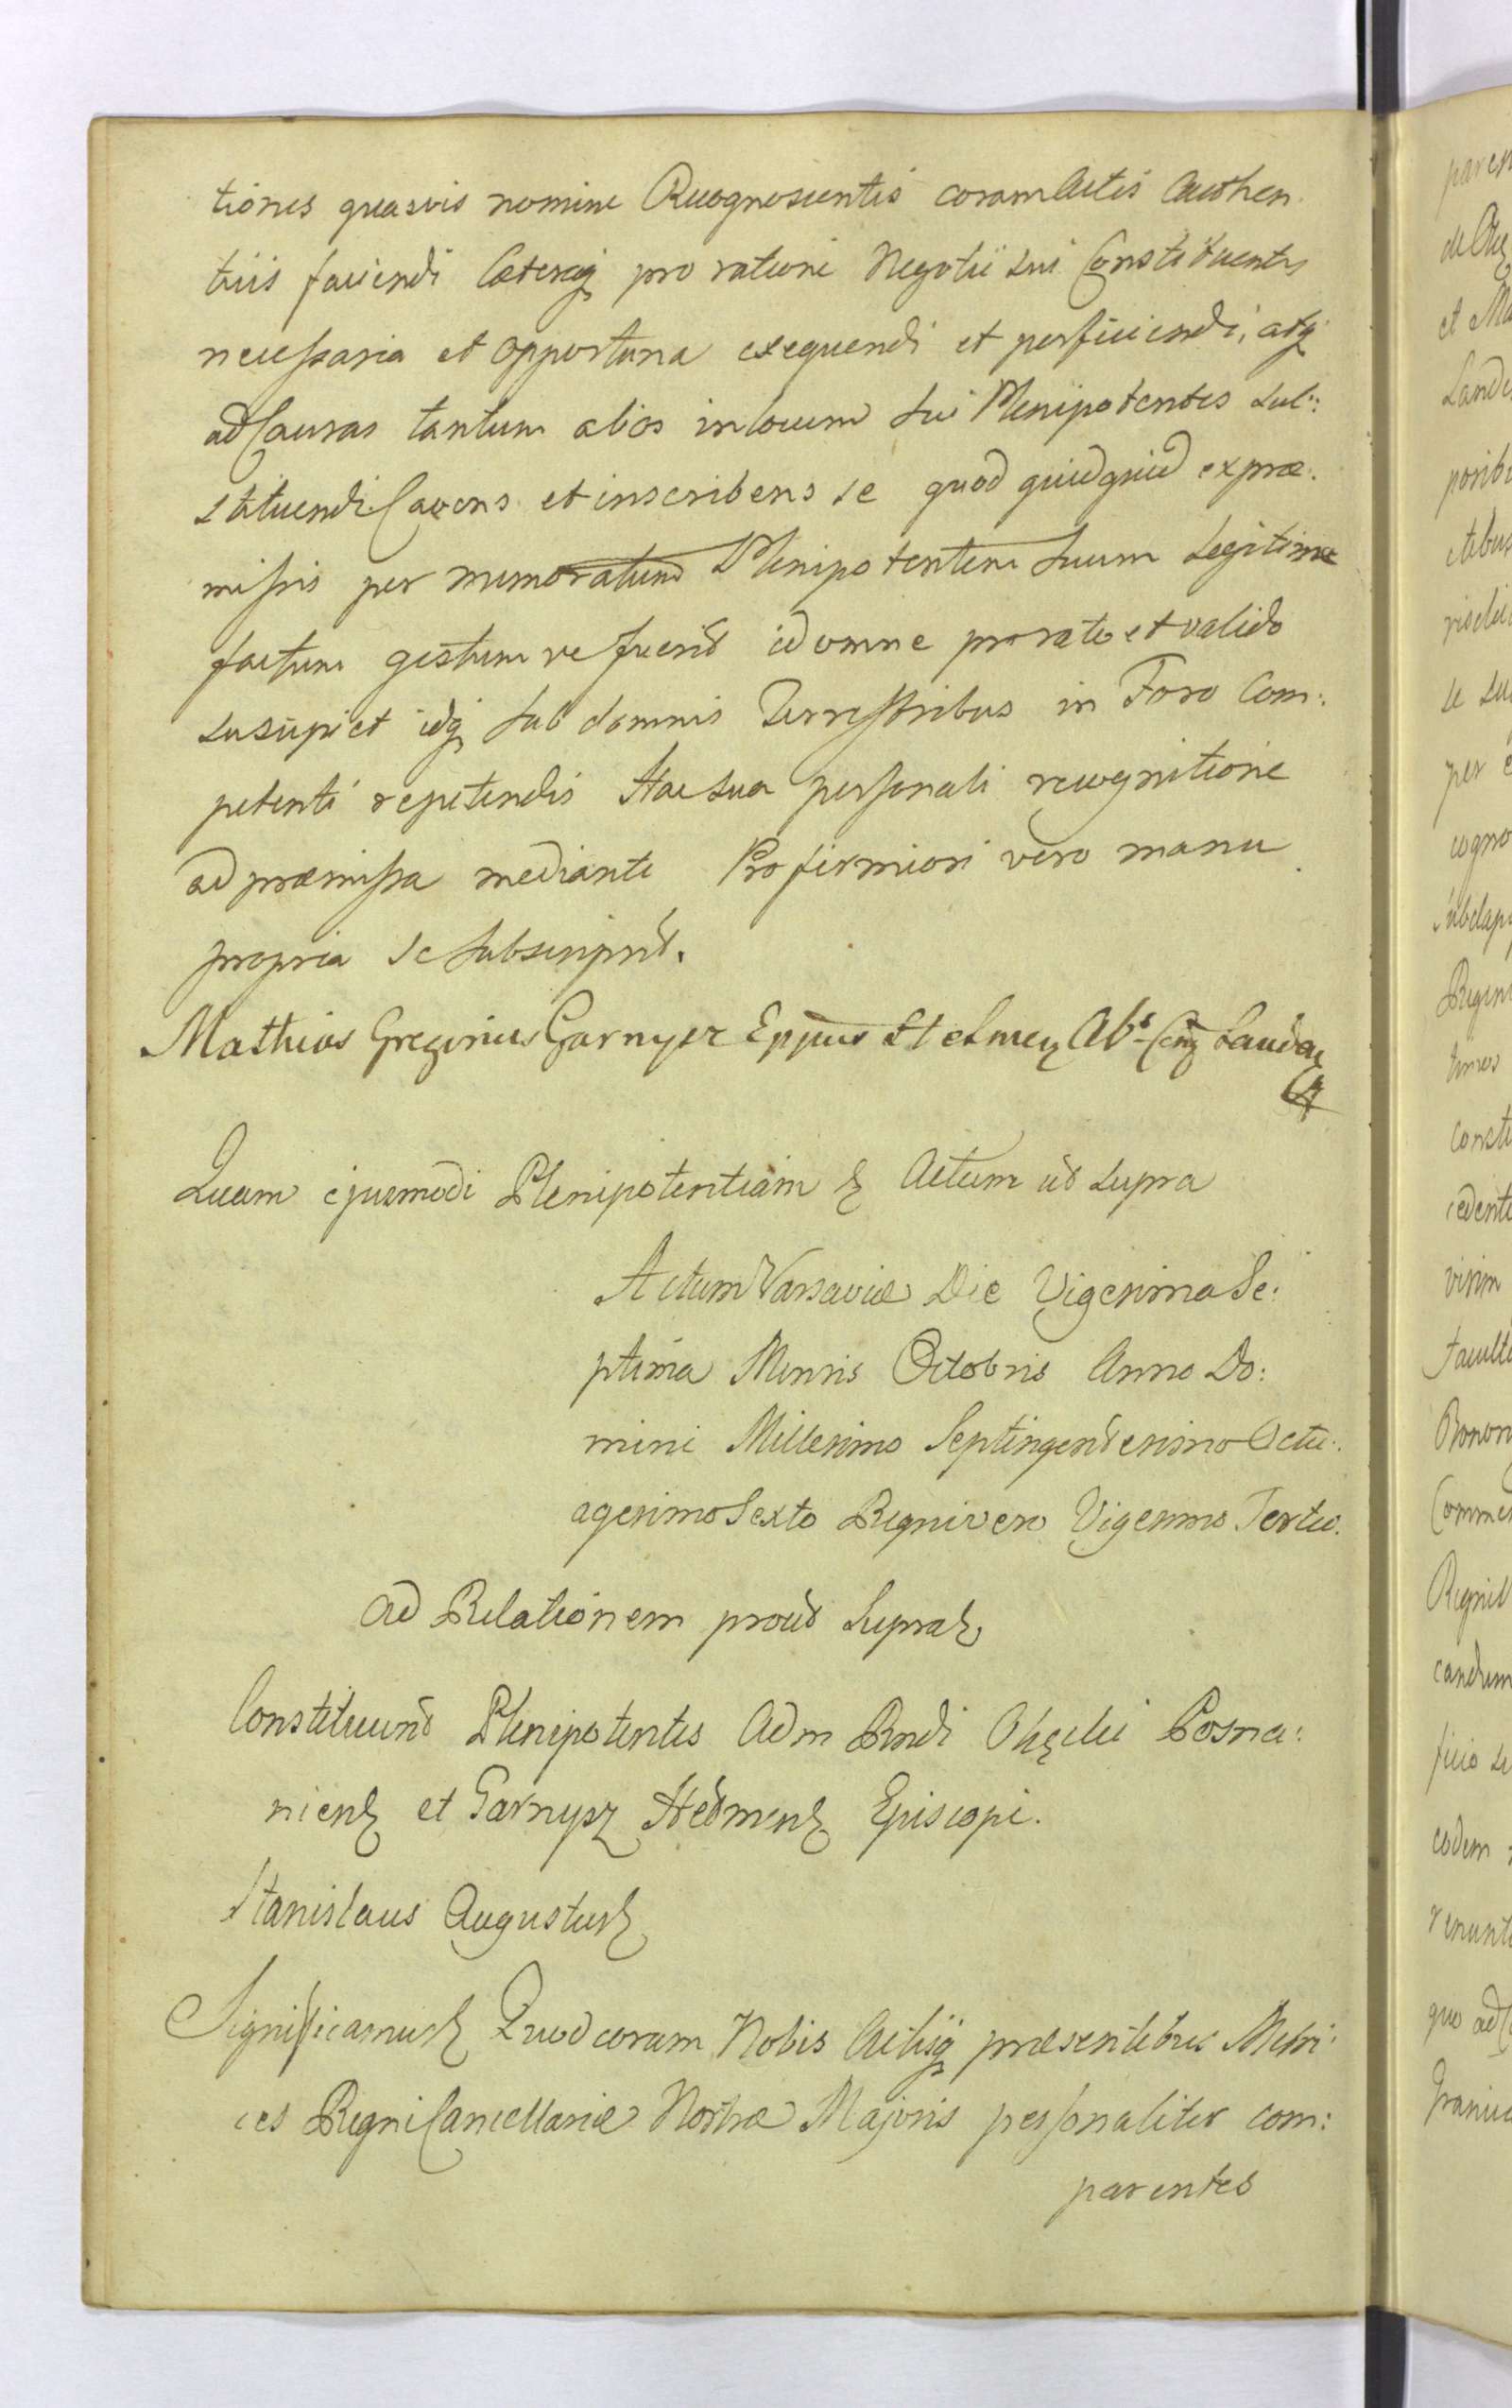 tiones quasvis nomine Recognoscentis coram Actis Authen
ticis faciendi Caeteraq pro ratione Negotii sui Constituentis
necessaria et opportuna exequendi et perficiendi, atq
ad Causas tantum alios in locum sui Plenipotentes sub:
stituendi Cavens et inscribens se quod quidquid ex prae:
missis per memoratum Plenipotentem suum Legitime
factum gestumve fuerit id omne pro rato et valido
suscipiet idq sub damnis Terrestribus in Foro Com:
petenti repetendis Hac sua personali recognitione
ad praemissa mediante Pro firmiori vero manu
propria se subscripsit.
Mathias Gregorius Garnysz Eppus Abs Landae
Quam ejusmodi Plenipotentiam & Actum ut supra
Actum Varsaviae Die Vigesima Se:
ptima Mensis Octobris Anno Do:
mini Millesimo Septingentesimo Octu:
agesimo Sexto Regni vero Vigesimo Tertio.
Ad Relationem prout supra &
Constituunt Plenipotentes Adm Rndi Okęcki Posna:
niens et Garnysz Helmens Episcopi.
Stanislaus Augustus &
Significamus & Quod coram Nobis Actisq praesentibus Metri:
ces Regni Cancellariae Nostrae Majoris personaliter com:
parentes